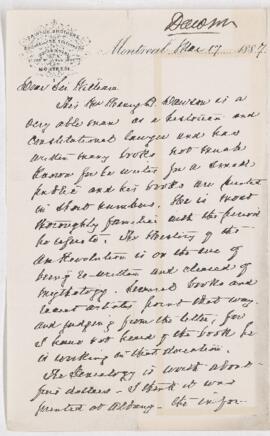 Dawson
DAWSON BROTHERS
MONTREAL
Montreal, Mar 17 1887
Dear Sir William
This Mr Henry B Dawson is a
very able man as a historian and
constitutional lawyer and has
written many books not much
known for he writes for a small
public and his books are printed
in short numbers. He is most
thoroughly familiar with the period
he refers to. The History of the
Am Revolution is on the eve of
being re-written and cleared of
mythology. Several books and
recent articles point that way
and judging from the letter, for
I have not heard of the book he
is working in that direction.
The Genealogy is worth about
five dollars - I think it was
printed at Albany. The infor-